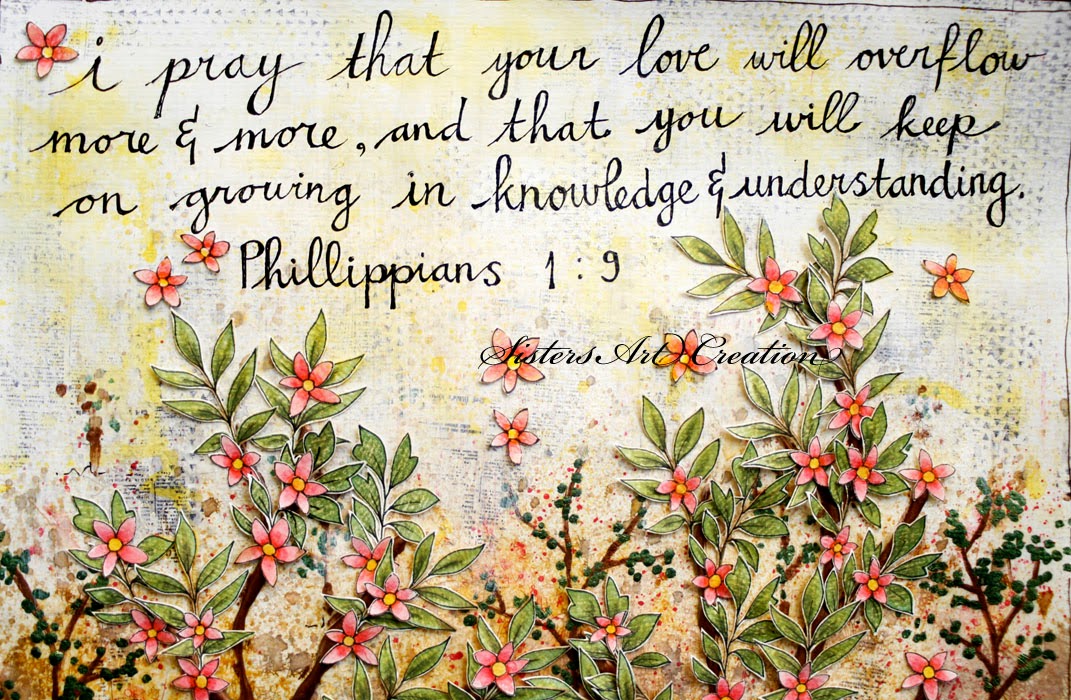 i pray that your love will overflow
more & more, and that you will keep
on growing in knowledge & understanding.
Phillippians 1:9
Sisters Art Creation